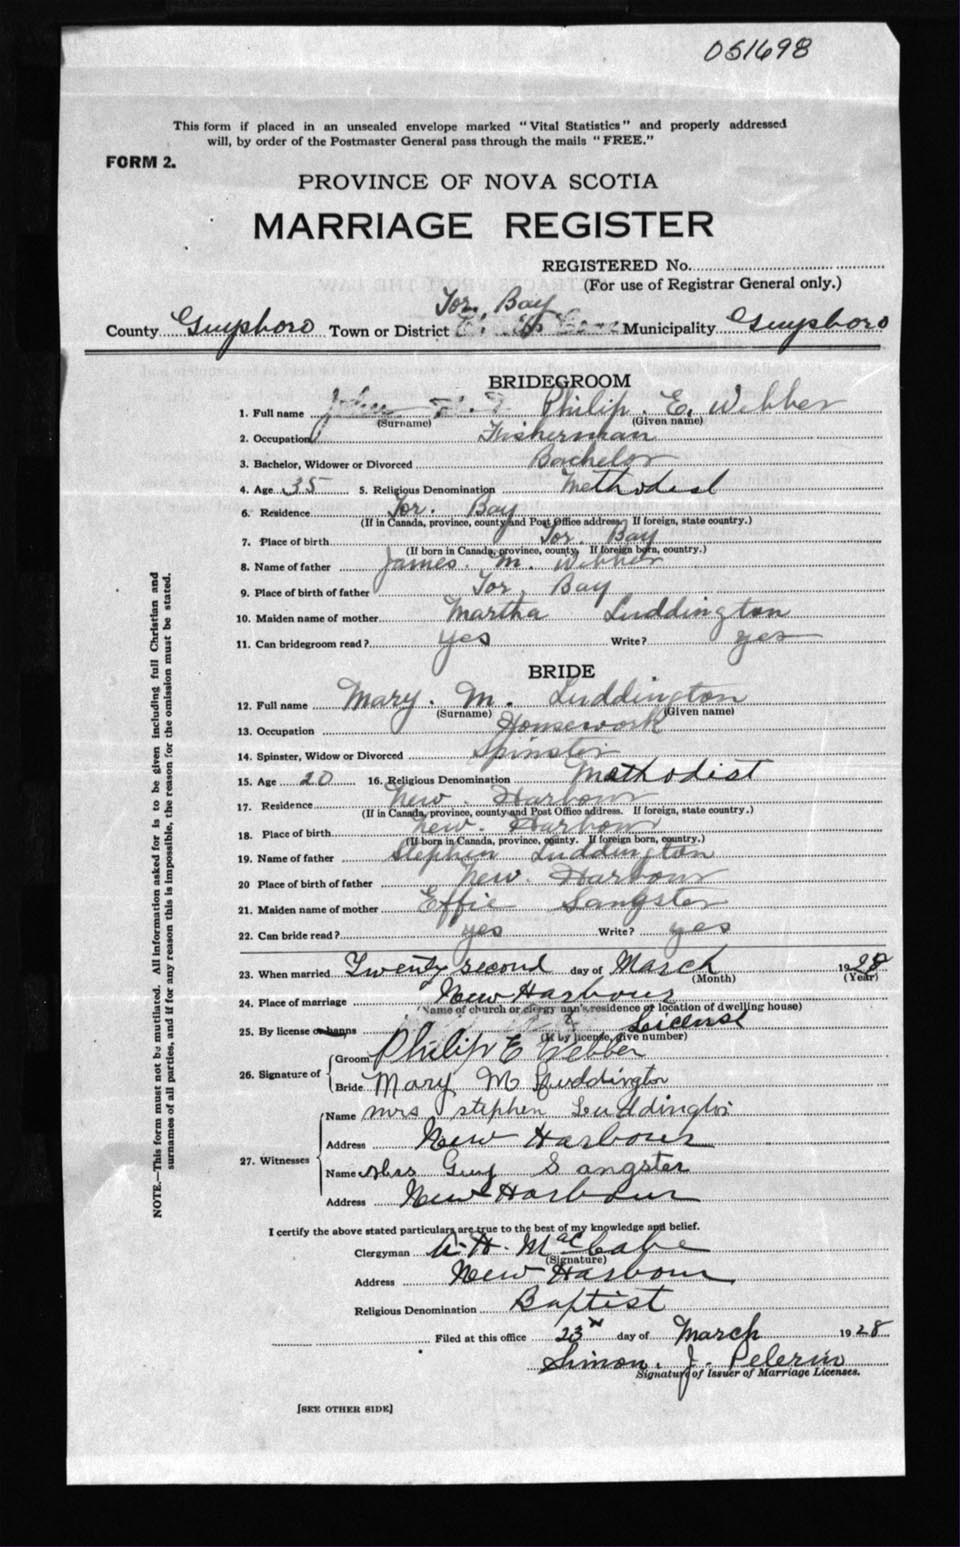 051698
This form if placed in an unsealed envelope marked "Vital Statistics" and properly addressed
will, by order of the Postmaster General pass through the mails "FREE."
FORM 2.
PROVINCE OF NOVA SCOTIA
MARRIAGE REGISTER
REGISTERED No.
(For use of Registrar General only.)
Tor. Bay
County Guysboro Town or District Municipality Guysboro
BRIDEGROOM
1. Full name John Philip. E. Webber
(Surname) (Given name)
2. Occupation Fisherman
3. Bachelor, Widower or Divorced Bachelor
4. Age 35 5. Religious Denomination Methodist
6. Residence Tor. Bay
(If in Canada, province, county and Post Office address. If foreign, state country.)
7. Place of birth Tor. Bay
(If born in Canada, province, county. If foreign born, country.)
8. Name of father James. M. Webber
9. Place of birth of father Tor. Bay
10. Maiden name of mother Martha Luddington
11. Can bridegroom read? yes Write? yes
BRIDE
12. Full name Mary. M. Luddington
(Surname) (Given name)
13. Occupation Housework
14. Spinster, Widow or Divorced Spinster
15. Age 20 16. Religious Denomination Methodist
17. Residence New. Harbour
(If in Canada, province, county and Post Office address. If foreign, state country.)
18. Place of birth New. Harbour
(If born in Canada, province, county. If foreign born, country.)
19. Name of father Stephen Luddington
20 Place of birth of father New. Harbour
21. Maiden name of mother Effie Sangster
22. Can bride read? yes Write? yes
23. When married Twenty second day of March 1928
(Month) (Year)
24. Place of marriage New Harbour
(Name of church or clergyman's residence or location of dwelling house)
25. By license or banns License
(If by license, give number)
26. Signature of Groom Philip E Webber
Bride Mary M Luddington
27. Witnesses Name Mrs Stephen Luddington
Address New Harbour
Name Mrs Guy Sangster
Address New Harbour
I certify the above stated particulars are true to the best of my knowledge and belief.
Clergyman A. H. MacCabe
(Signature)
Address New Harbour
Religious Denomination Baptist
Filed at this office 23 day of March 1928
Simon. J. Pelerin
Signature of Issuer of Marriage Licenses.
[SEE OTHER SIDE]
NOTE.—This form must not be mutilated. All information asked for is to be given including full Christian and
surnames of all parties, and if for any reason this is impossible, the reason for the omission must be stated.